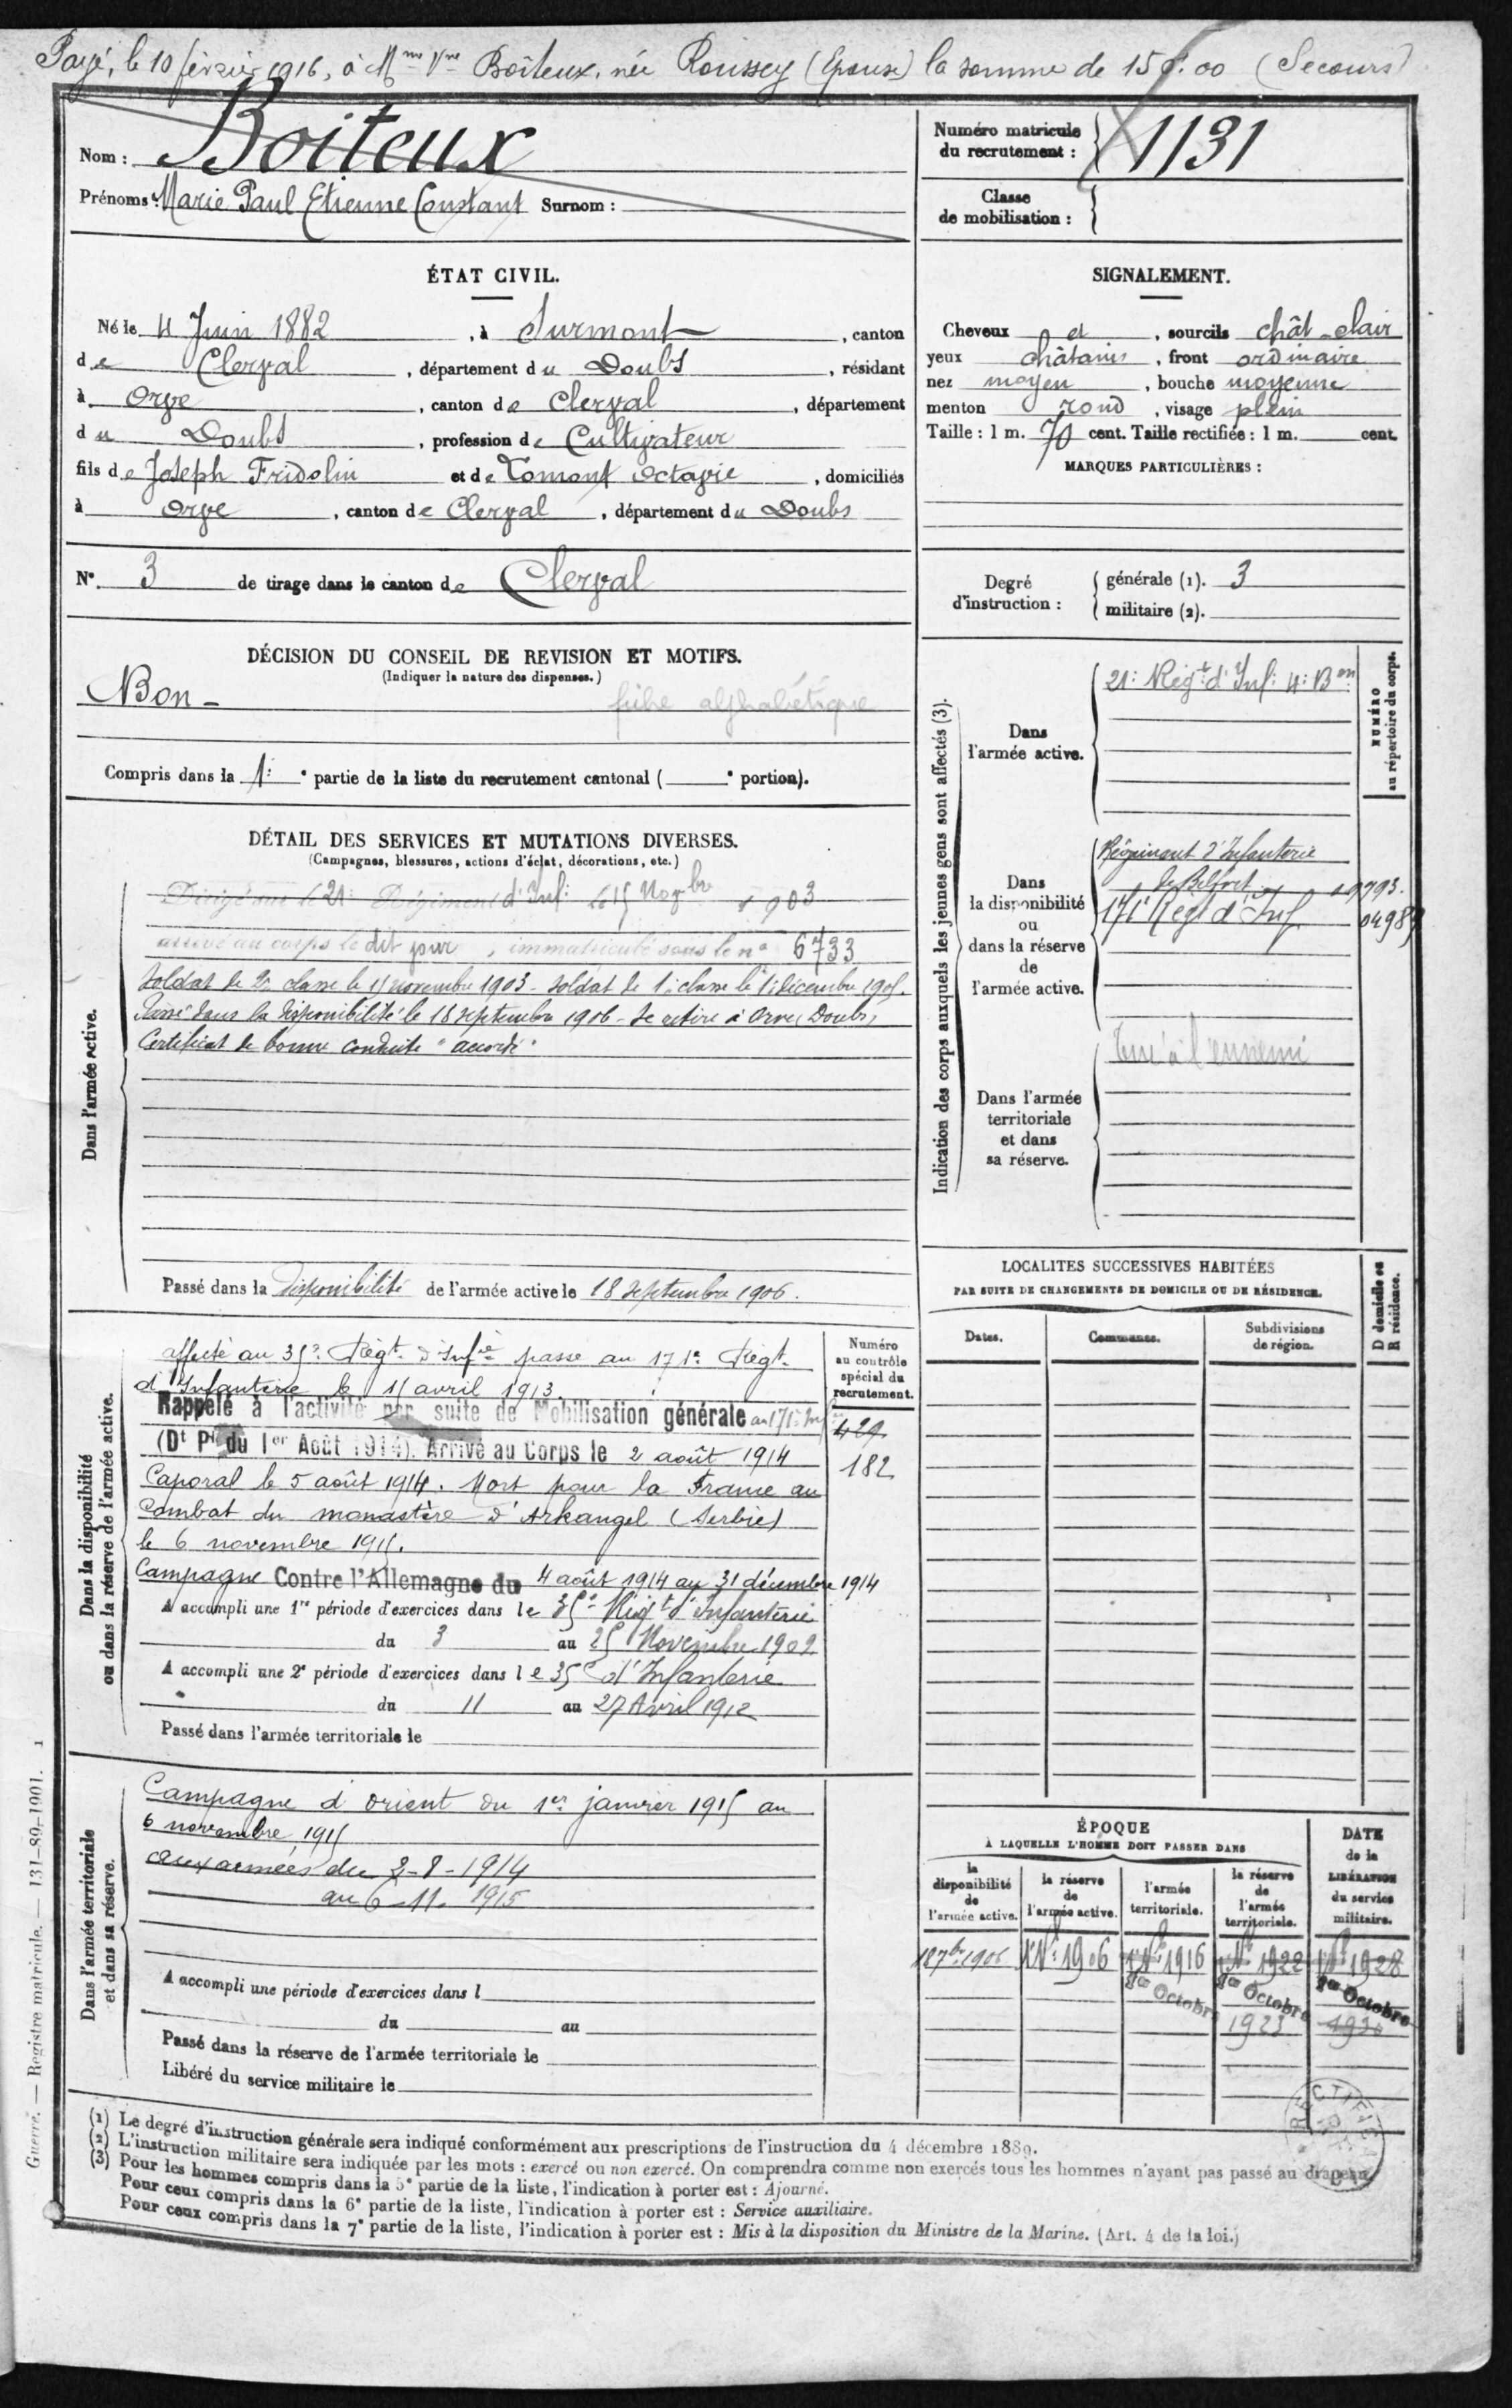 Payé, le 10 février 1916, à Mme Vve Boiteux, née Roussey (Epouse) la somme de 150f.00 (Secours)
Nom : Boiteux
Prénoms : Marie Paul Etienne Constant Surnom :
Numéro matricule du recrutement : 1131
Classe de mobilisation :
ÉTAT CIVIL.
Né le 4 Juin 1882, à Surmont, canton
de Clerval, département du Doubs, résidant
à Orve, canton de Clerval, département
du Doubs, profession de Cultivateur
fils de Joseph Fridolin et de Tomont Octavie, domiciliés
à Orve, canton de Clerval, département du Doubs
N° 3 de tirage dans le canton de Clerval
SIGNALEMENT.
Cheveux et, sourcils chât clair
yeux châtains, front ordinaire
nez moyen, bouche moyenne
menton rond, visage plein
Taille : 1 m. 70 cent. Taille rectifiée : 1 m. cent.
MARQUES PARTICULIÈRES :
Degré d'instruction :
générale (1). 3
militaire (2).
DÉCISION DU CONSEIL DE REVISION ET MOTIFS.
(Indiquer la nature des dispenses.)
Bon -
fiche alphabétique
Compris dans la 1: e partie de la liste du recrutement cantonal ( e portion).
DÉTAIL DES SERVICES ET MUTATIONS DIVERSES.
(Campagnes, blessures, actions d'éclat, décorations, etc.)
Dans l'armée active.
Dirigé sur le 21: Régiment d'Inf: le 15 Novbre 1903
arrivé au corps le dit jour, immatriculé sous le n° 6733
Soldat de 2e classe le 15 novembre 1903 - Soldat de 1: classe le 1: décembre 1905.
Passé dans la disponibilité le 18 septembre 1906 - Se retire à Orve (Doubs)
Certificat de bonne conduite "accordé"
Passé dans la disponibilité de l'armée active le 18 septembre 1906.
Indication des corps auxquels les jeunes gens sont affectés (3).
NUMÉRO au répertoire du corps.
Dans l'armée active.
21: Régt d'Inf: 4: Bon
Dans la disponibilité ou dans la réserve de l'armée active.
Régiment d'Infanterie
de Belfort
171e Régt d'Inf.
Dans l'armée territoriale et dans sa réserve.
Tué à l'ennemi
Dans la disponibilité ou dans la réserve de l'armée active.
Numéro au contrôle spécial du recrutement.
429
182
affecté au 35e Régt d'Infie passe au 171e Régt
d'Infanterie le 15 avril 1913.
Rappelé à l'activité par suite de Mobilisation générale au 171e Inf
(Dt Pl du 1er Août 1914). Arrivé au Corps le 2 août 1914
Caporal le 5 août 1914. Mort pour la France au
Combat du monastère d'Arkangel (Serbie)
le 6 novembre 1915.
Campagne Contre l'Allemagne du 4 août 1914 au 31 décembre 1914
A accompli une 1re période d'exercices dans le 35e Régt d'Infanterie
du 3 au 25 Novembre 1909
A accompli une 2e période d'exercices dans le 35e d'Infanterie
du 11 au 27 Avril 1912
Passé dans l'armée territoriale le
LOCALITES SUCCESSIVES HABITÉES
PAR SUITE DE CHANGEMENTS DE DOMICILE OU DE RÉSIDENCE.
Dates. Communes. Subdivisions de région. D domicile ou R résidence.
Dans l'armée territoriale et dans sa réserve.
Campagne d'orient du 1er janvier 1915 au
6 novembre 1915
aux armées du 2-8-1914
au 6-11-1915
A accompli une période d'exercices dans l
du au
Passé dans la réserve de l'armée territoriale le
Libéré du service militaire le
ÉPOQUE
À LAQUELLE L'HOMME DOIT PASSER DANS
la disponibilité de l'armée active. la réserve de l'armée active. l'armée territoriale. la réserve de l'armée territoriale.
DATE de la LIBÉRATION du service militaire.
18 7bre 1906 1906 1916 1922 1928
1er Octobre 1er Octobre 1er Octobre
1923
(1) Le degré d'instruction générale sera indiqué conformément aux prescriptions de l'instruction du 4 décembre 1889.
(2) L'instruction militaire sera indiquée par les mots : exercé ou non exercé. On comprendra comme non exercés tous les hommes n'ayant pas passé au drapeau.
(3) Pour les hommes compris dans la 5e partie de la liste, l'indication à porter est : Ajourné.
Pour ceux compris dans la 6e partie de la liste, l'indication à porter est : Service auxiliaire.
Pour ceux compris dans la 7e partie de la liste, l'indication à porter est : Mis à la disposition du Ministre de la Marine. (Art. 4 de la loi.)
Guerre. — Registre matricule. — 131-89-1901. 1